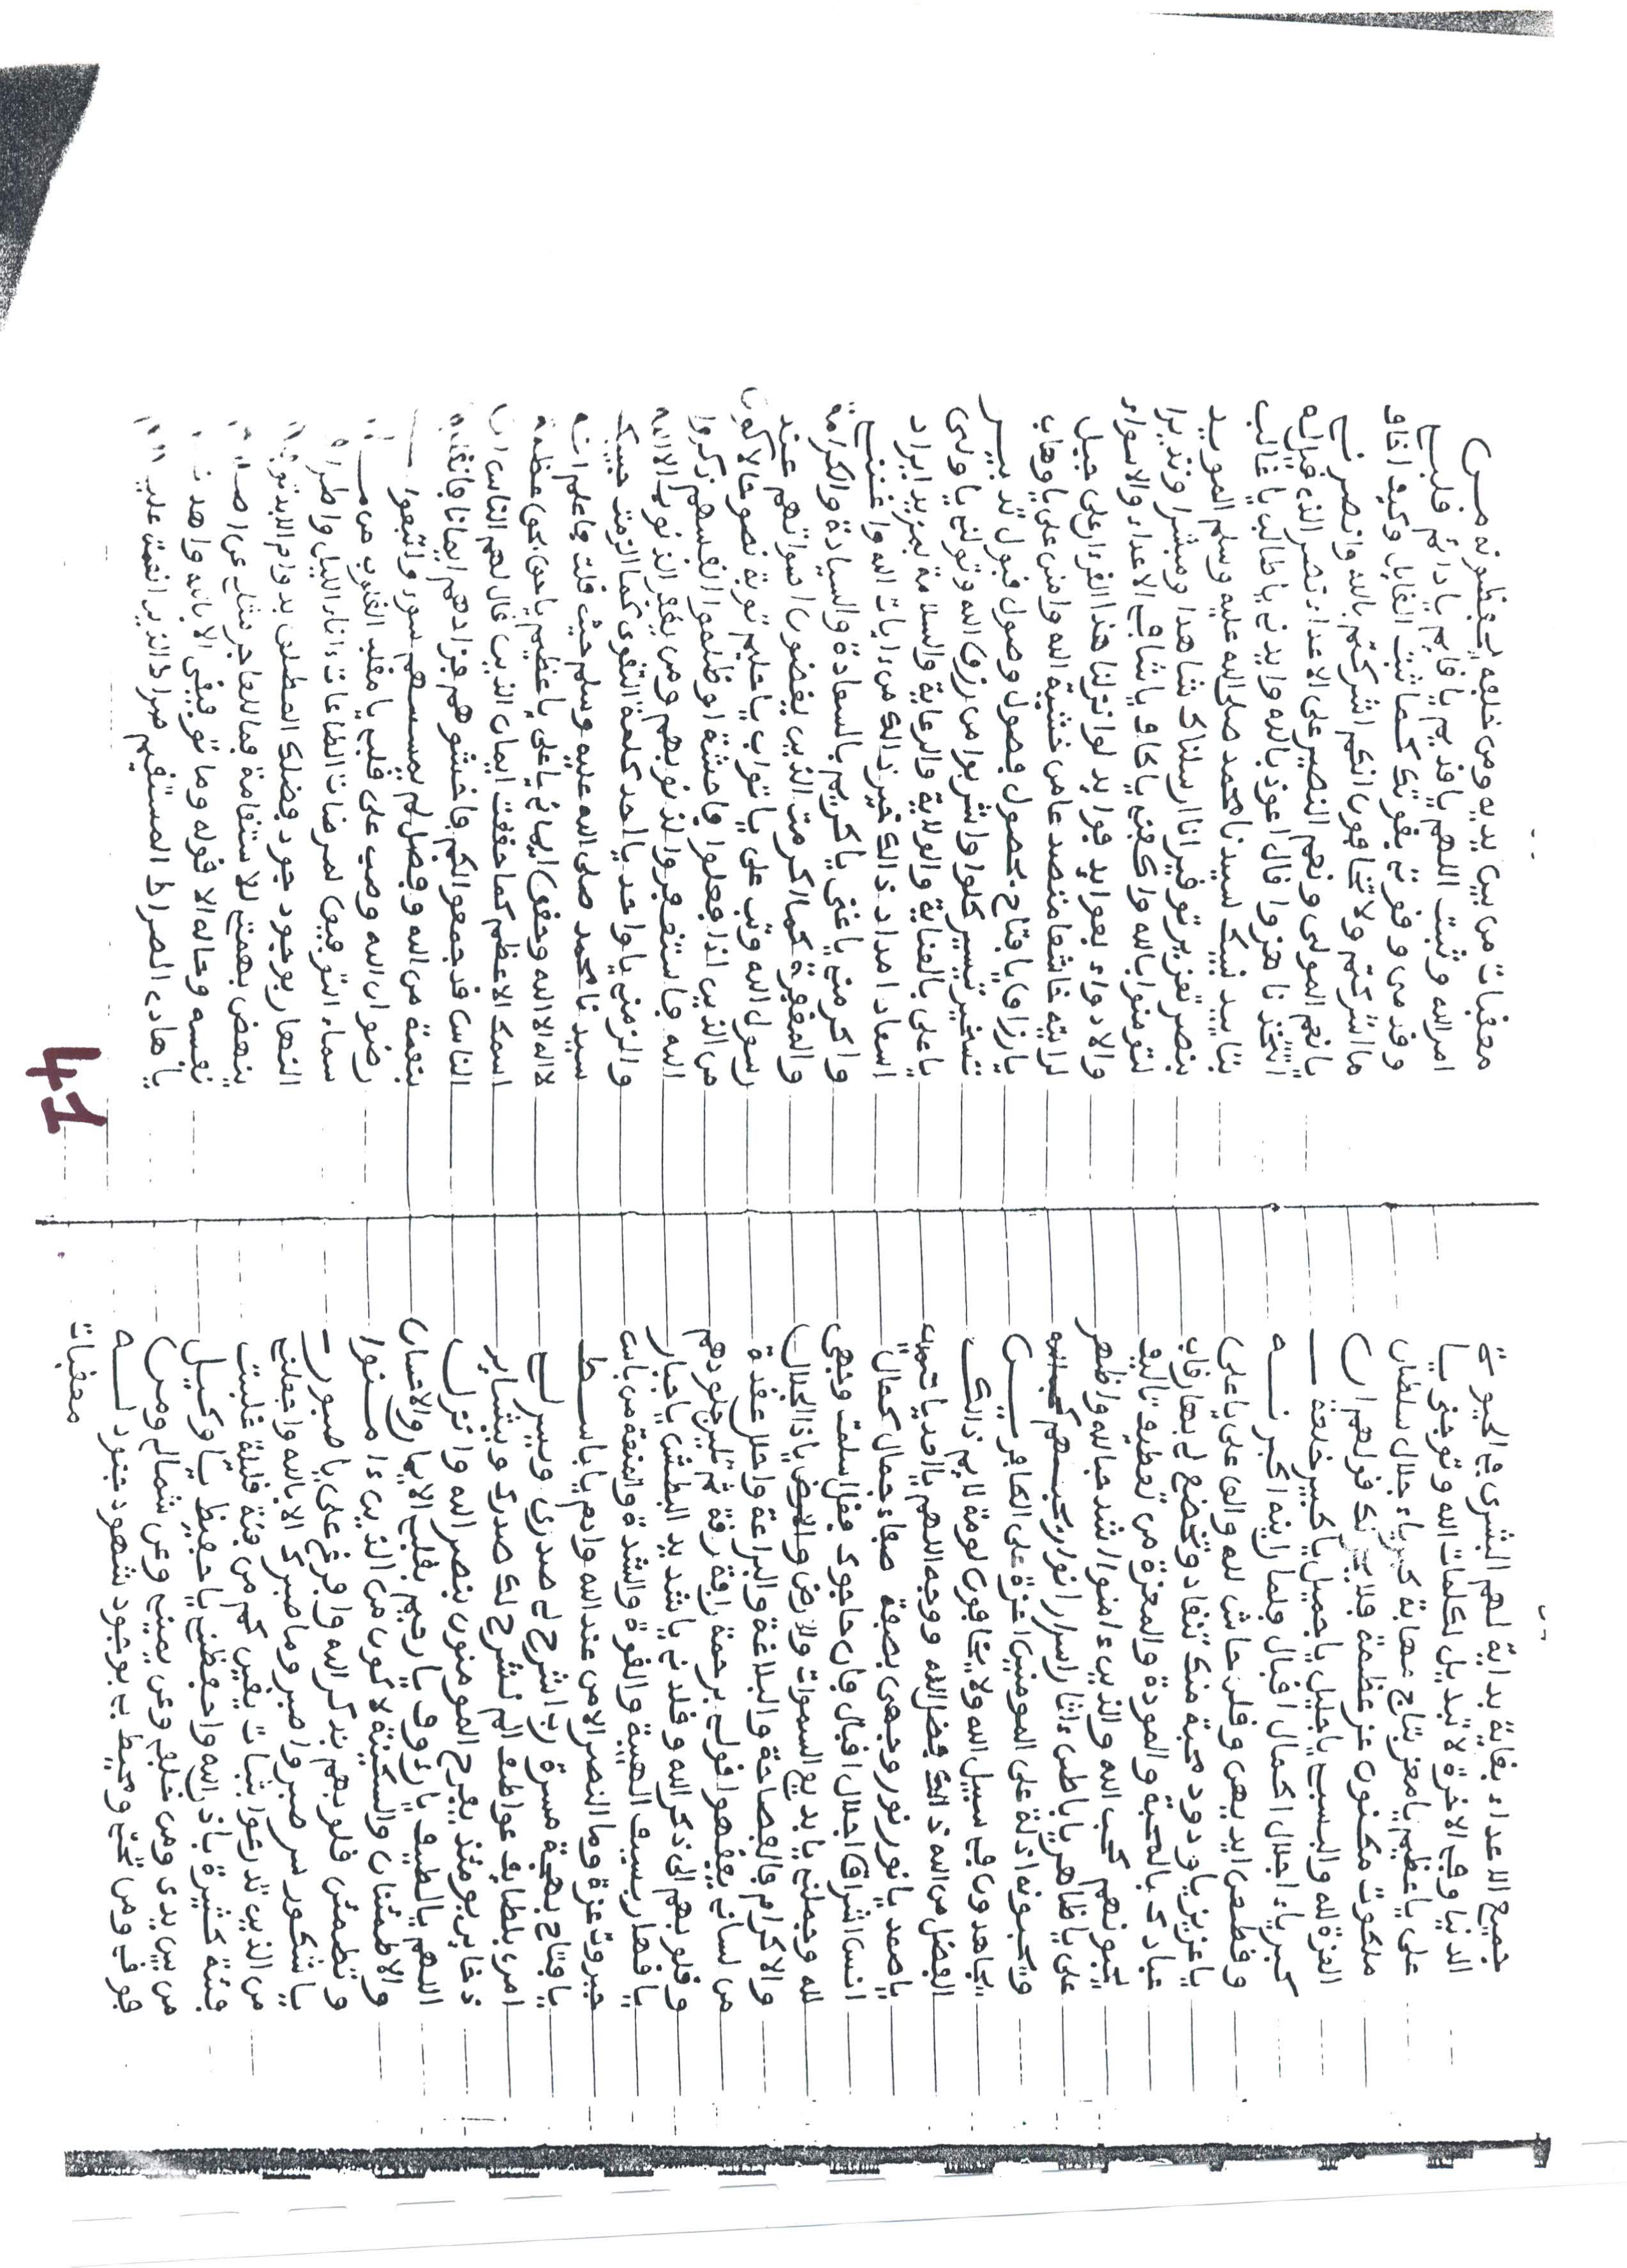 جميع الاعداء بغاية بداية لهم البشرى في الحيوة
الدنيا وفي الاخرة لا تبديل لكلمات الله وتوجني يا
علي يا عظيم يا معز بتاج مهابة كبرياء جلال سلطان
ملكوت مكنون عز عظمة فلا يحزنك قولهم ان
العزة لله والبسني يا جليل يا جميل يا كبير خلعة
كبرياء اجلال اكمال اقبال فلما راينه اكبرنه
وقطعن ايديهن وقلن حاش لله والق علي يا علي
يا عزيز يا ودود محبة منك تنقاد وتخضع لي بها رقاب
عبادك بالمحبة والمودة والمعزة من تعطيف تاليف
يحبونهم كحب الله والذين ءامنوا اشد حبا لله واظهر
علي يا ظاهر يا باطن ءاثار اسرار انوار يحبهم
ويحبونه اذلة على المومنين اعزة على الكافرين
يجاهدون في سبيل الله ولا يخافون لومة لايم ذالك
الفضل من الله ذالك فضل الله ووجه اللهم يا احد
يا صمد يا نور نور وجهي بصفة صفاء جمال كمال
انس اشراق اجلال اقبال فان حاجوك فقل اسلمت وجهي
لله وجملني يا بديع السموات ولارض والارض يا ذا الجلال
والاكرام بالفصاحة والبلاغة والبراعة واحلل عقدة
من لساني يفقهوا قولي برحمة رافة رقة ثم تلين جلودهم
وقلوبهم الى ذكر الله وقلدني يا شديد البطش يا جبار
يا قهار بسيف الهيبة والقوة والشدة والمنعة من باس
جبروت عزة وما النصر الا من عند الله وادم يا باسط
يا فتاح بهجة مسرة رب اشرح لي صدري ويسر لي
امري بلطايف عواطف الم نشرح لك صدرك وبشاير
ذخاير يومئذ يفرح المومنون بنصر الله وانزل
اللهم يا لطيف يا رءوف يا رحيم بقلبي الايمان والاحسان
والاطمئنان والسكينة لاكون من الذين ءامنوا
وتطمئن قلوبهم بذكر الله وافرغ علي يا صبور
يا شكور سر صبر واصبر وما صبرك الا بالله واجعلني
من الذين تدرعوا بثبات يقين كم من فئة قليلة غلبت
فئة كثيرة باذن الله واحفظني يا حفيظ يا وكيل
من بين يدي ومن خلفي وعن يميني وعن شمالي ومن
فوقي ومن تحتي ومحيط بي بوجود شهود جنود له
معقبات
معقبات من بين يديه ومن خلفه يحفظونه من
امر الله وثبت اللهم يا قديم يا قايم يا دائم قلبي
وقدمي وقوتي بقوتك كما ثبت القايل وكيف اخاف
ما اشركتم ولا تخافون انكم اشركتم بالله وانصرني
يا نعم المولى ونعم النصير على الاعداء نصر الذي قيل له
اتتخذنا هزوا قال اعوذ بالله وايدني يا طالب يا غالب
بتاييد نبيك سيدنا محمد صلى الله عليه وسلم المويد
بنصر تعزير توقير انا ارسلناك شاهدا ومبشرا ونذيرا
لتومنوا بالله واكفني يا كاف يا شافي الاعداء والاسواء
والادواء بعوايد فوايد لو انزلنا هذا القرءان على جبل
لرايته خاشعا متصدعا من خشية الله وامنن علي يا وهاب
يا رزاق يا فتاح بحصول فصول وصول قبول تدبير
تسخير تيسير كلوا واشربوا من رزق الله وتولني يا ولي
يا علي بالعناية والولاية والرعاية والسلامة بمزيد ايراد
اسعاد امداد ذالك خير ذالك من ءايات الله واغنني
واكرمني يا غني يا كريم بالسعادة والسيادة والكرامة
والمغفرة كما اكرمت الذين يغضون اصواتهم عند
رسول الله وتب علي يا تواب يا حليم توبة نصوحا لاكون
من الذين اذا فعلوا فاحشة او ظلموا انفسهم ذكروا
الله فاستغفروا لذنوبهم ومن يغفر الذنوب الا الله
والزمني يا واحد يا احد كلمة التقوى كما الزمت حبيبك
سيدنا محمد صلى الله عليه وسلم حيث قلت فاعلم انه
لا اله الا الله وحقق ايماني يا علي يا عظيم يا حق بحق عظمة
اسمك الاعظم كما حققت ايمان الذين قال لهم الناس ان
الناس قد جمعوا لكم فاخشوهم فزادهم ايمانا فانقلبوا
بنعمة من الله وفضل لم يمسسهم سوء واتبعوا
رضوان الله وصب على قلبي يا مقلب القلوب من
سماء التوفيق لمرضات الطاعات ءاناء الليل واطراف
النهار بوجود جود فضلك المطلق بدوام الابد
ينهض بهمتي للاستقامة فما للعاجز مثلي عن
نفسه وحاله الا قوله وما توفيقي الا بالله واهدنا
يا هادي الصراط المستقيم صراط الذين انعمت عليهم
41